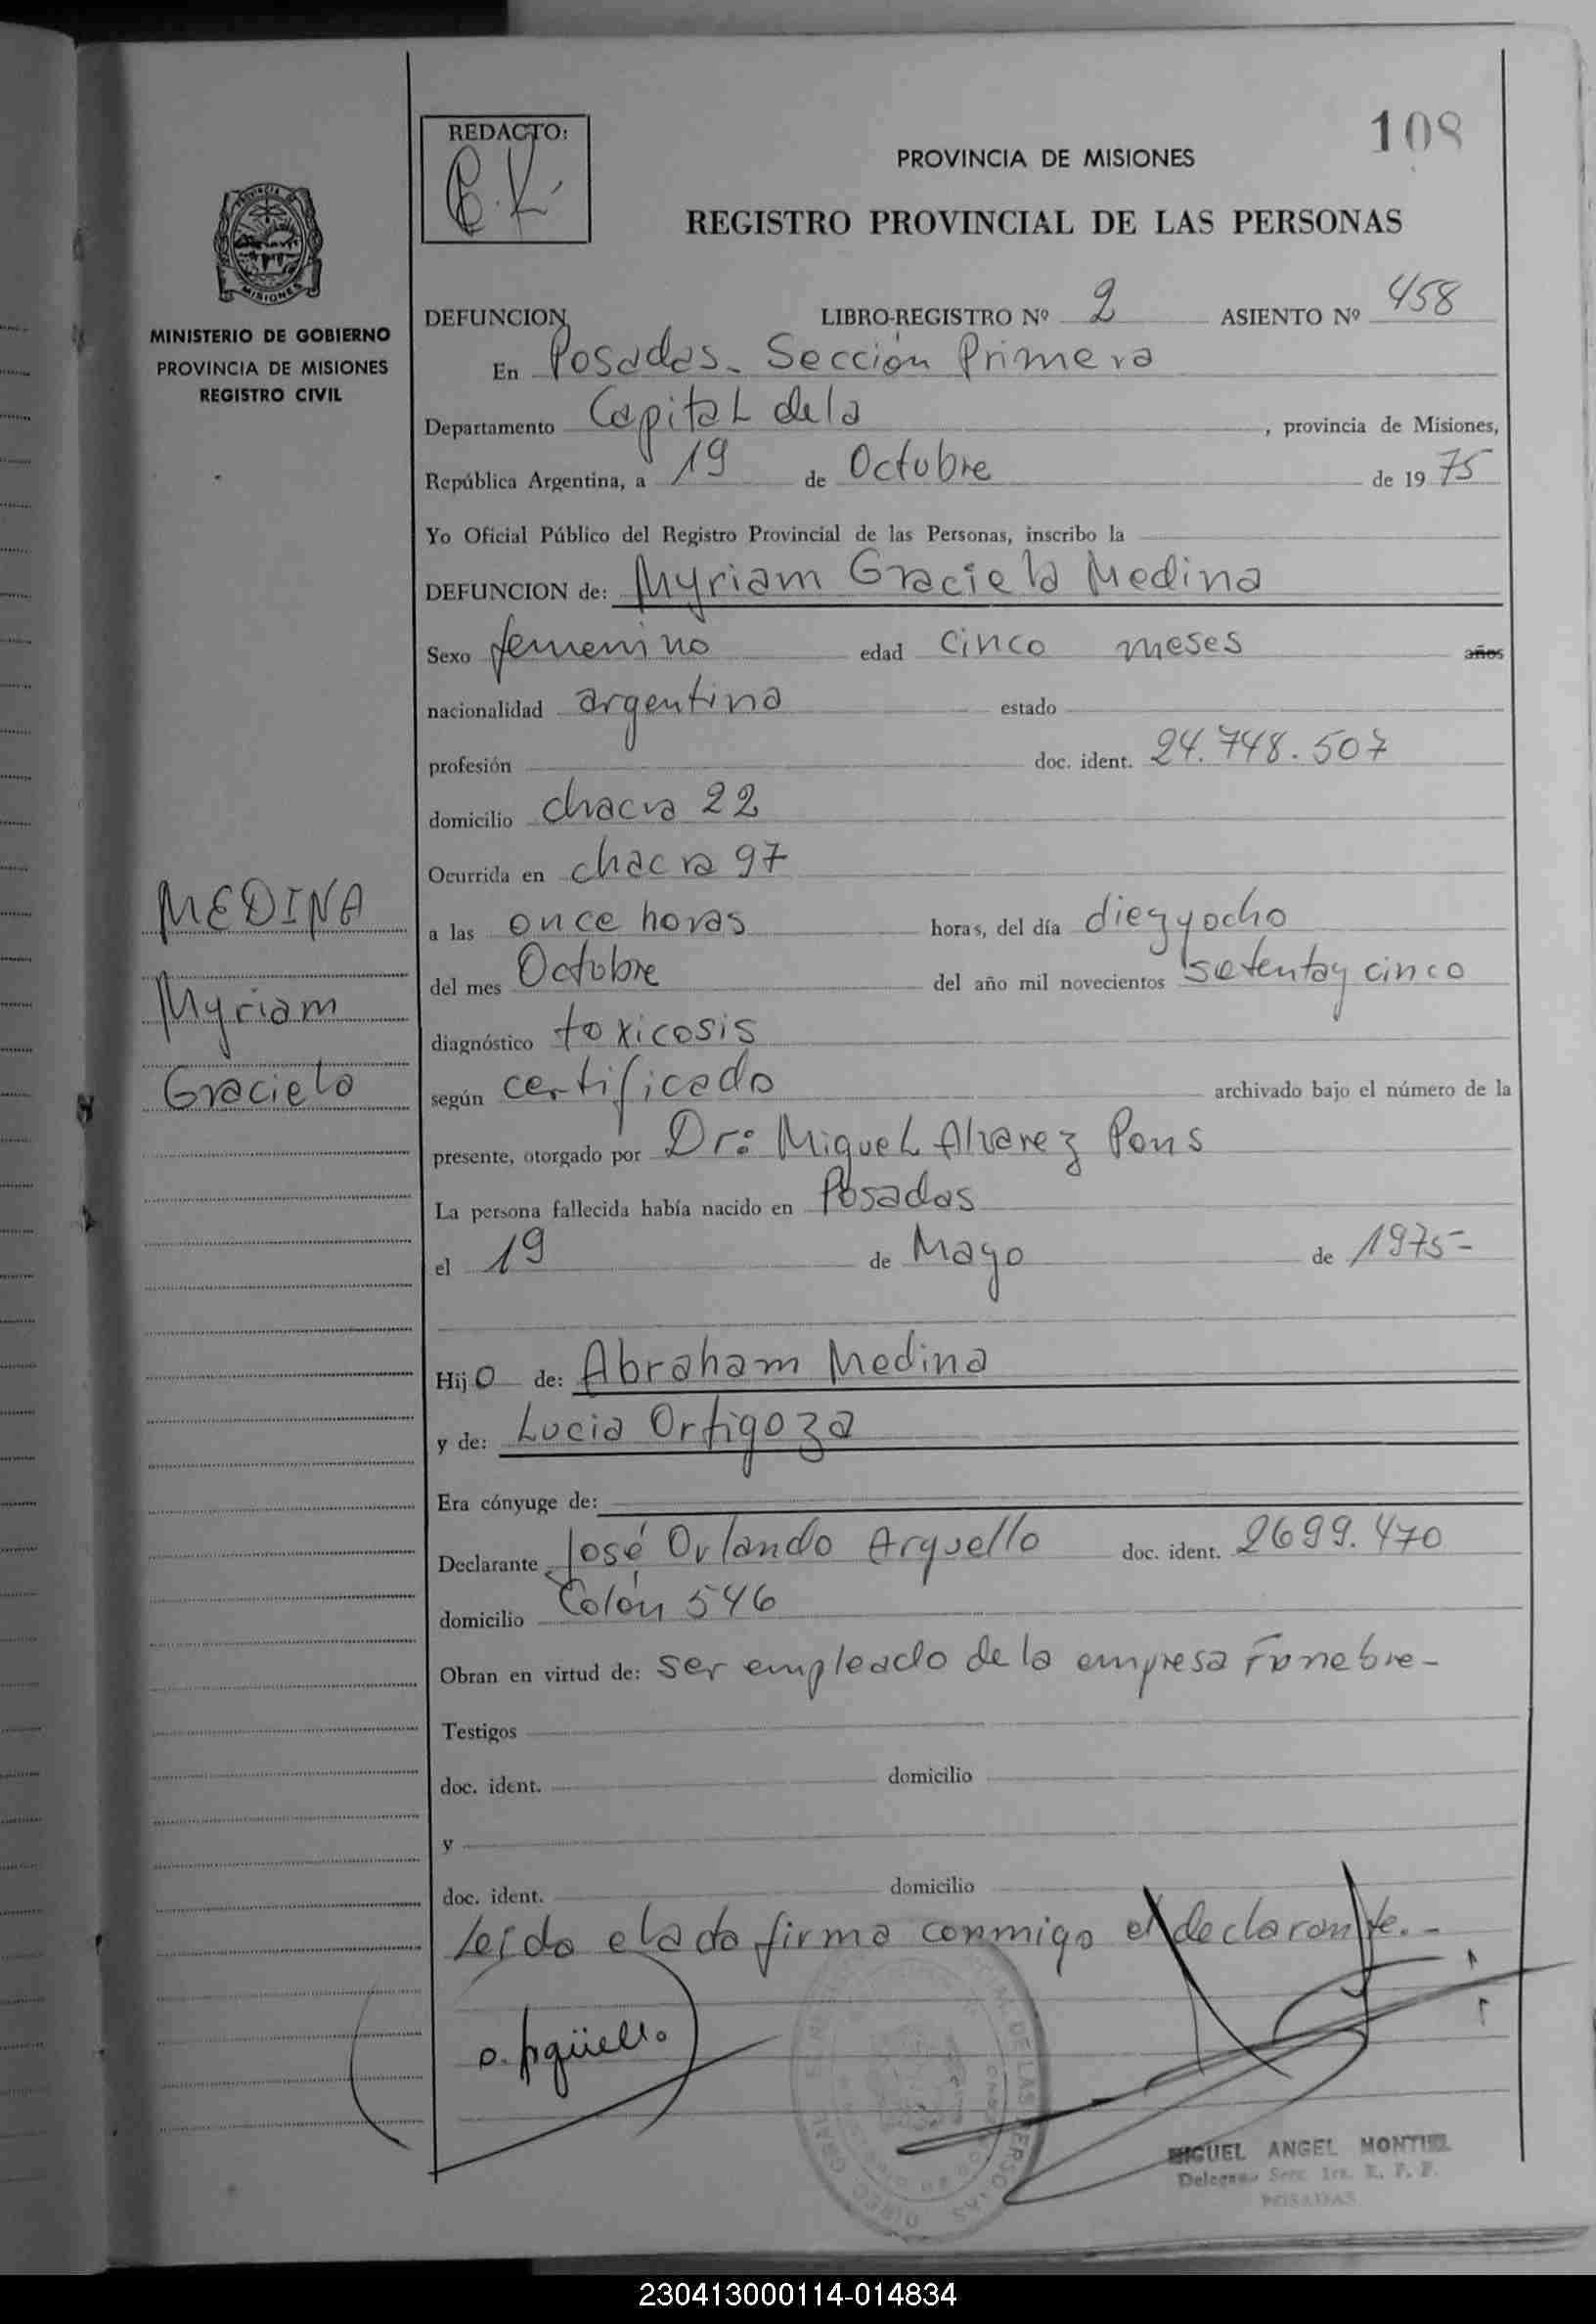 108
REDACTO:
PROVINCIA DE MISIONES
REGISTRO PROVINCIAL DE LAS PERSONAS
MISIONES
MINISTERIO DE GOBIERNO
PROVINCIA DE MISIONES
REGISTRO CIVIL
DEFUNCION LIBRO-REGISTRO Nº 2 ASIENTO Nº 458
En Posadas. Sección Primera
Departamento Capital de la , provincia de Misiones,
República Argentina, a 19 de Octubre de 1975
Yo Oficial Público del Registro Provincial de las Personas, inscribo la
DEFUNCION de: Myriam Graciela Medina
Sexo femenino edad cinco meses años
nacionalidad argentina estado
profesión doc. ident. 24.748.507
domicilio chacra 22
Ocurrida en chacra 97
a las once horas horas, del día diez y ocho
del mes Octubre del año mil novecientos setenta y cinco
diagnóstico toxicosis
según certificado archivado bajo el número de la
presente, otorgado por Dr: Miguel Alvarez Pons
La persona fallecida había nacido en Posadas
el 19 de Mayo de 1975-
Hijo de: Abraham Medina
y de: Lucia Ortigoza
Era cónyuge de:
Declarante José Orlando Arguello doc. ident. 2699.470
domicilio Colón 546
Obran en virtud de: ser empleado de la empresa Funebre-
Testigos
doc. ident. domicilio
y
doc. ident. domicilio
Leída el acta firma conmigo el declarante.-
MEDINA
Myriam
Graciela
O. Argüello
MIGUEL ANGEL MONTIEL
POSADAS
230413000114-014834